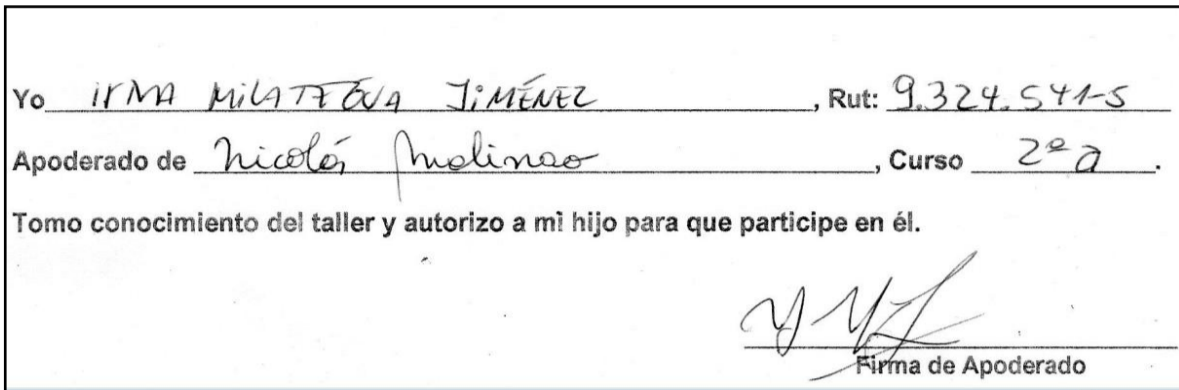 Yo IrMA JiMÉNEZ, Rut: 9.324.541-5
Apoderado de Nicolás Molinao, Curso 2º a.
Tomo conocimiento del taller y autorizo a mi hijo para que participe en él.
Firma de Apoderado